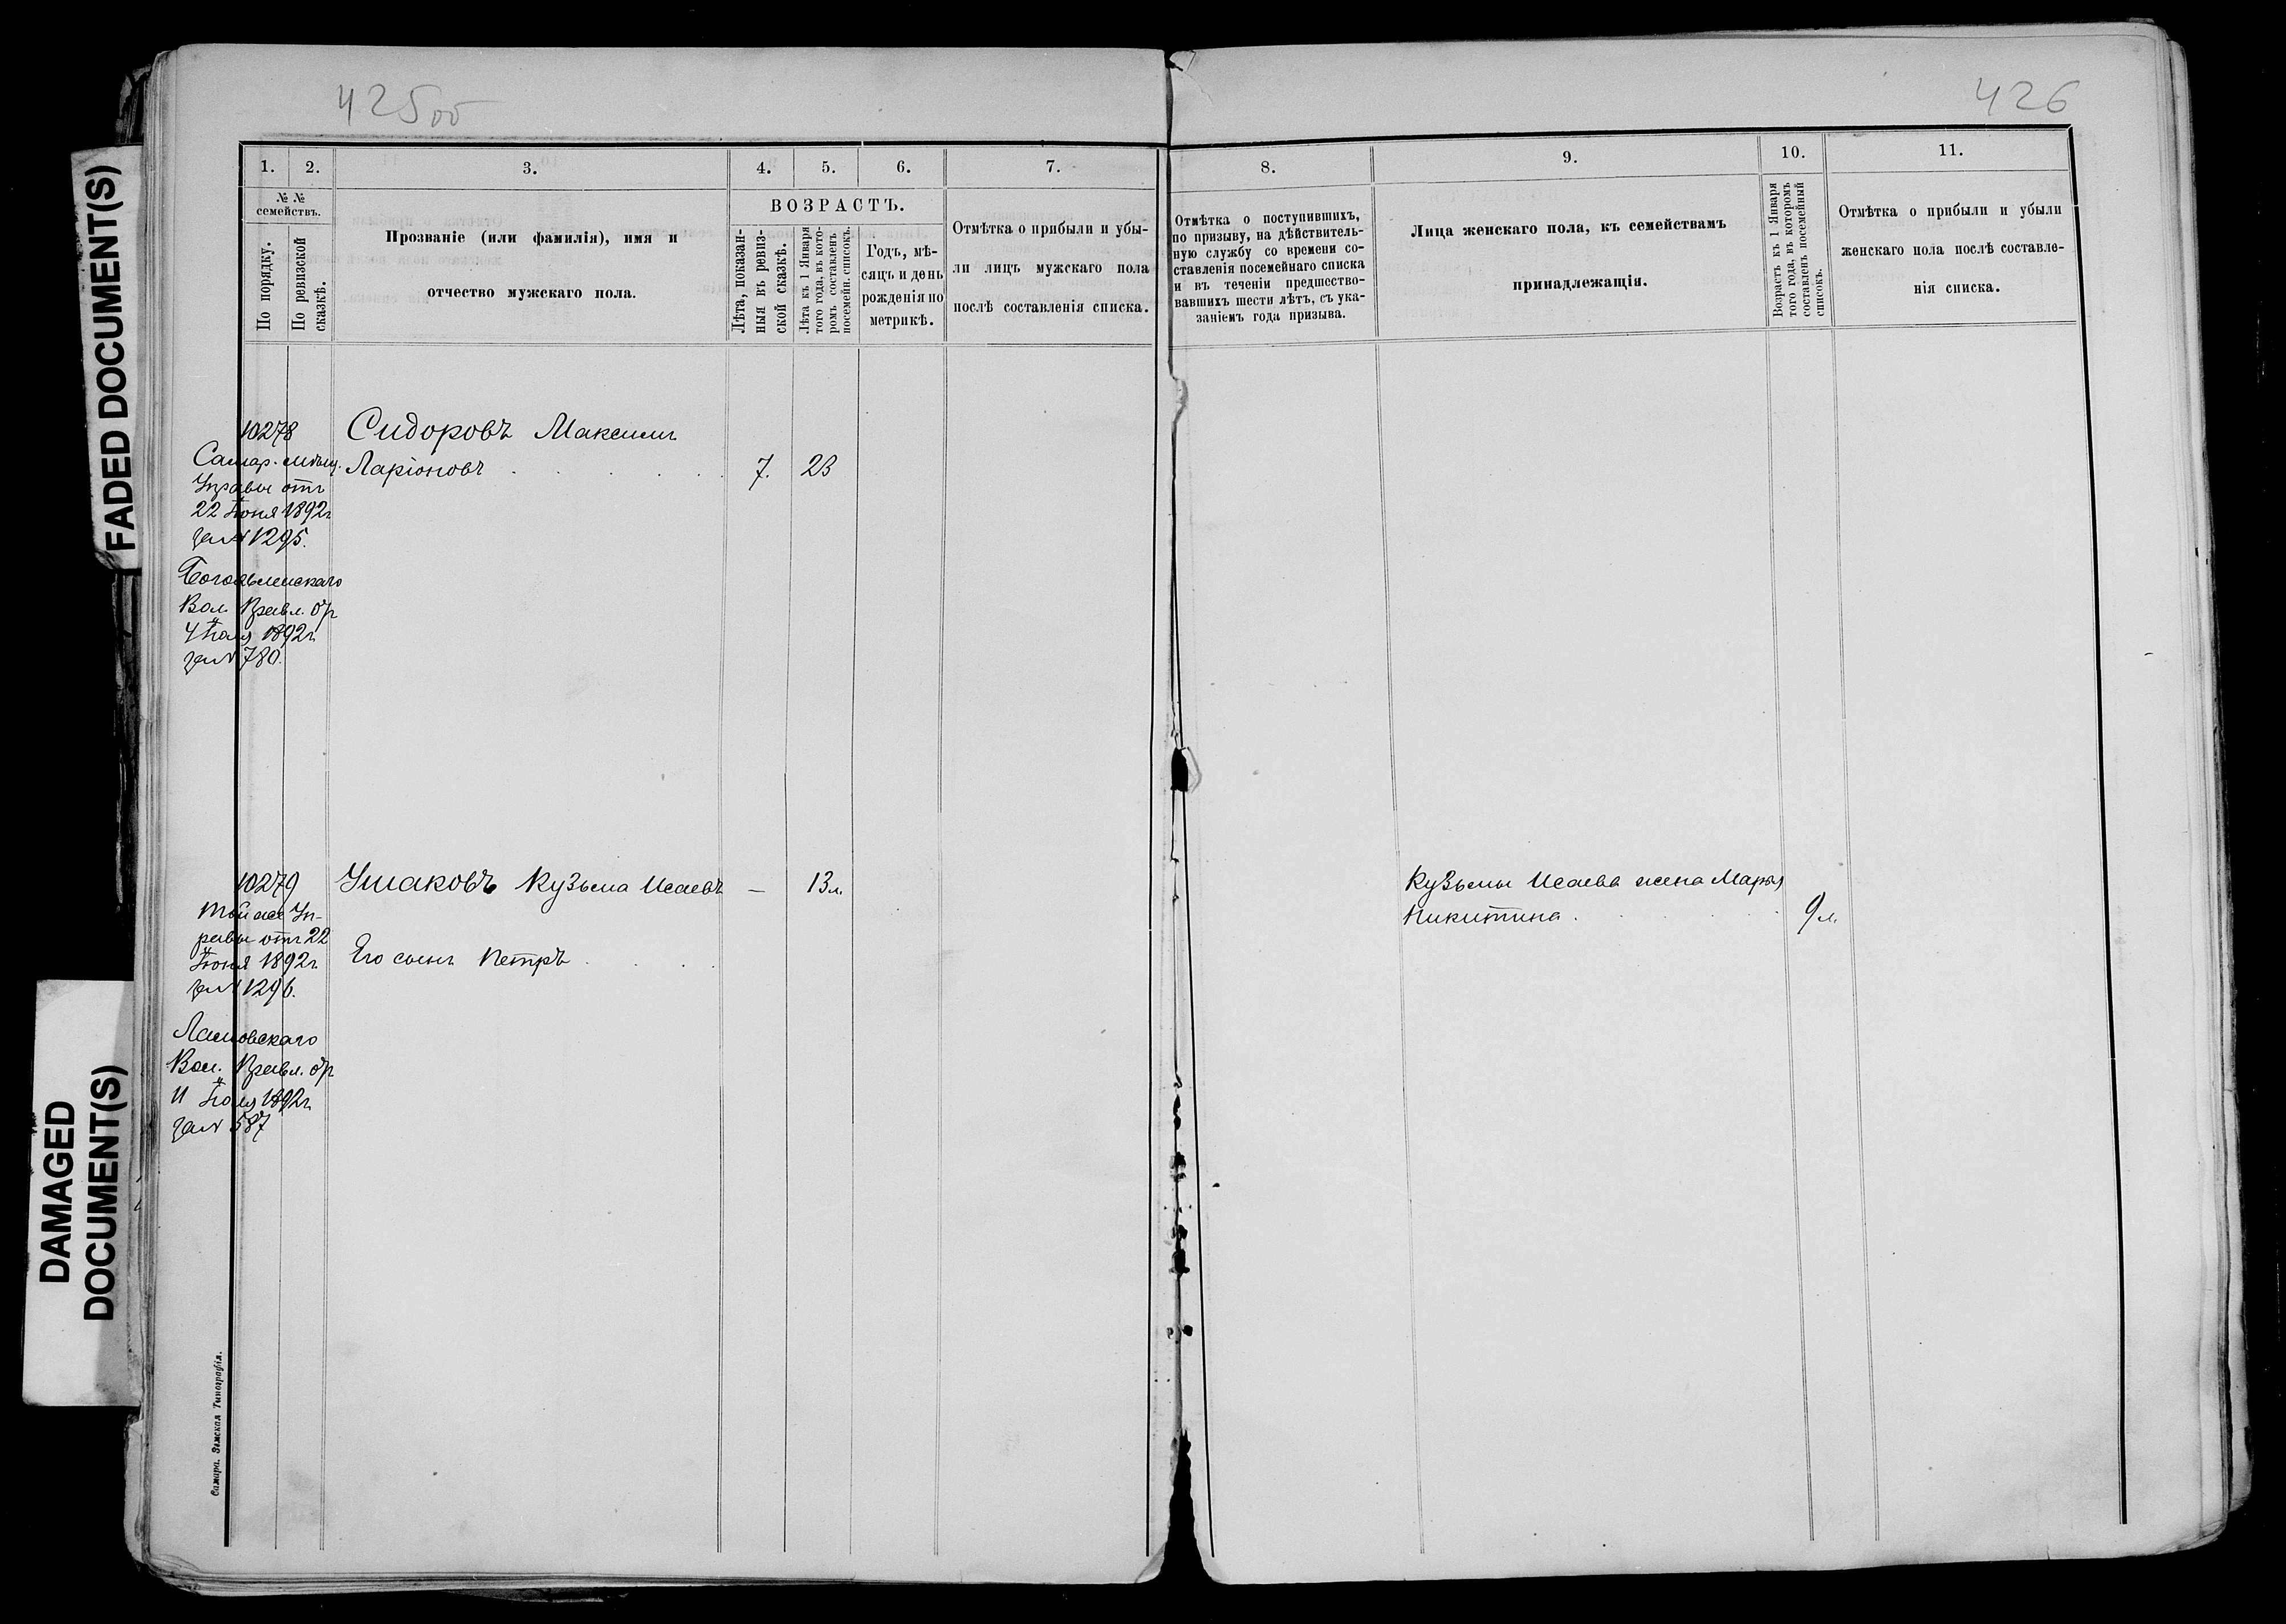 425об
426
FADED DOCUMENT(S)
DAMAGED
DOCUMENT(S)
1.
2.
3.
4.
5.
6.
7.
8.
9.
10.
11.
№ №
семействъ.
По порядку.
По ревизской
сказкѣ.
Прозваніе (или фамилія), имя и
отчество мужскаго пола.
ВОЗРАСТЪ.
Лѣта, показан-
ныя въ ревиз-
ской сказкѣ.
Лѣта къ 1 Января
того года, въ кото-
ромъ составленъ
посемейн. списокъ.
Годъ, мѣ-
сяцъ и день
рожденія по
метрикѣ.
Отмѣтка о прибыли и убы-
ли лицъ мужскаго пола
послѣ составленія списка.
Отмѣтка о поступившихъ,
по призыву, на дѣйствитель-
ную службу со времени со-
ставленія посемейнаго списка
и въ теченіи предшество-
вавшихъ шести лѣтъ, съ ука-
заніемъ года призыва.
Лица женскаго пола, къ семействамъ
принадлежащія.
Возрастъ къ 1 Января
того года, въ которомъ
составленъ посемейный
списокъ.
Отмѣтка о прибыли и убыли
женскаго пола послѣ составле-
нія списка.
10278 Сидоровъ Максимъ
Самар. мѣщ. Ларіоновъ . . . . 7. 23
Управы отъ
22 Іюня 1892г
за № 1295.
Богоявленскаго
Вол. Правл. от
4 Іюля 1892г
за № 780.
10279 Ушаковъ Кузьма Исаевъ — 13л. Кузьмы Исаева жена Марья
Той же Уп-
Никитина . . . . 9л.
равы отъ 22
Іюня 1892г. Его сынъ Петръ . . . .
за № 1296.
Вол. Правл. от
11 Іюля 1892г
за № 587
Самара. Земская Типографія.